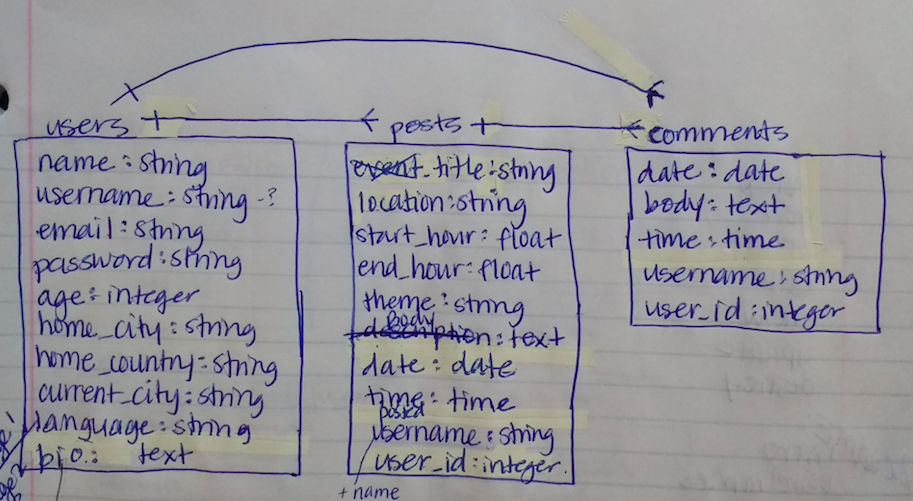 users
name : string
username : string -?
email : string
password : string
age : integer
home_city : string
home_country : string
current_city : string
language : string
bio : text
posts
event_title : string
location : string
start_hour : float
end_hour : float
theme : string
Body
description : text
date : date
time : time
posted
username : string
user_id : integer.
+ name
comments
date : date
body : text
time : time
username : string
user_id : integer